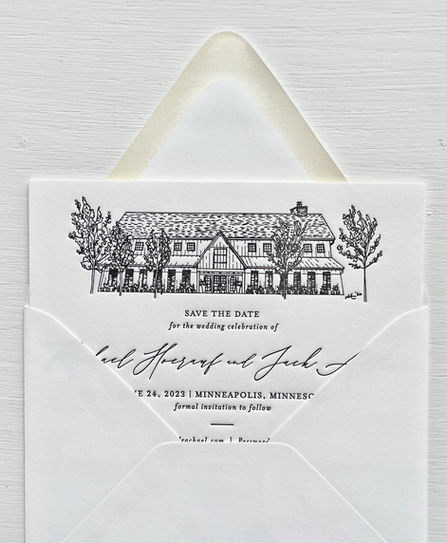 SAVE THE DATE
for the wedding celebration of
ael Hoerauf and Jack
E 24, 2023 | MINNEAPOLIS, MINNESO
formal invitation to follow
rachael.com | Password